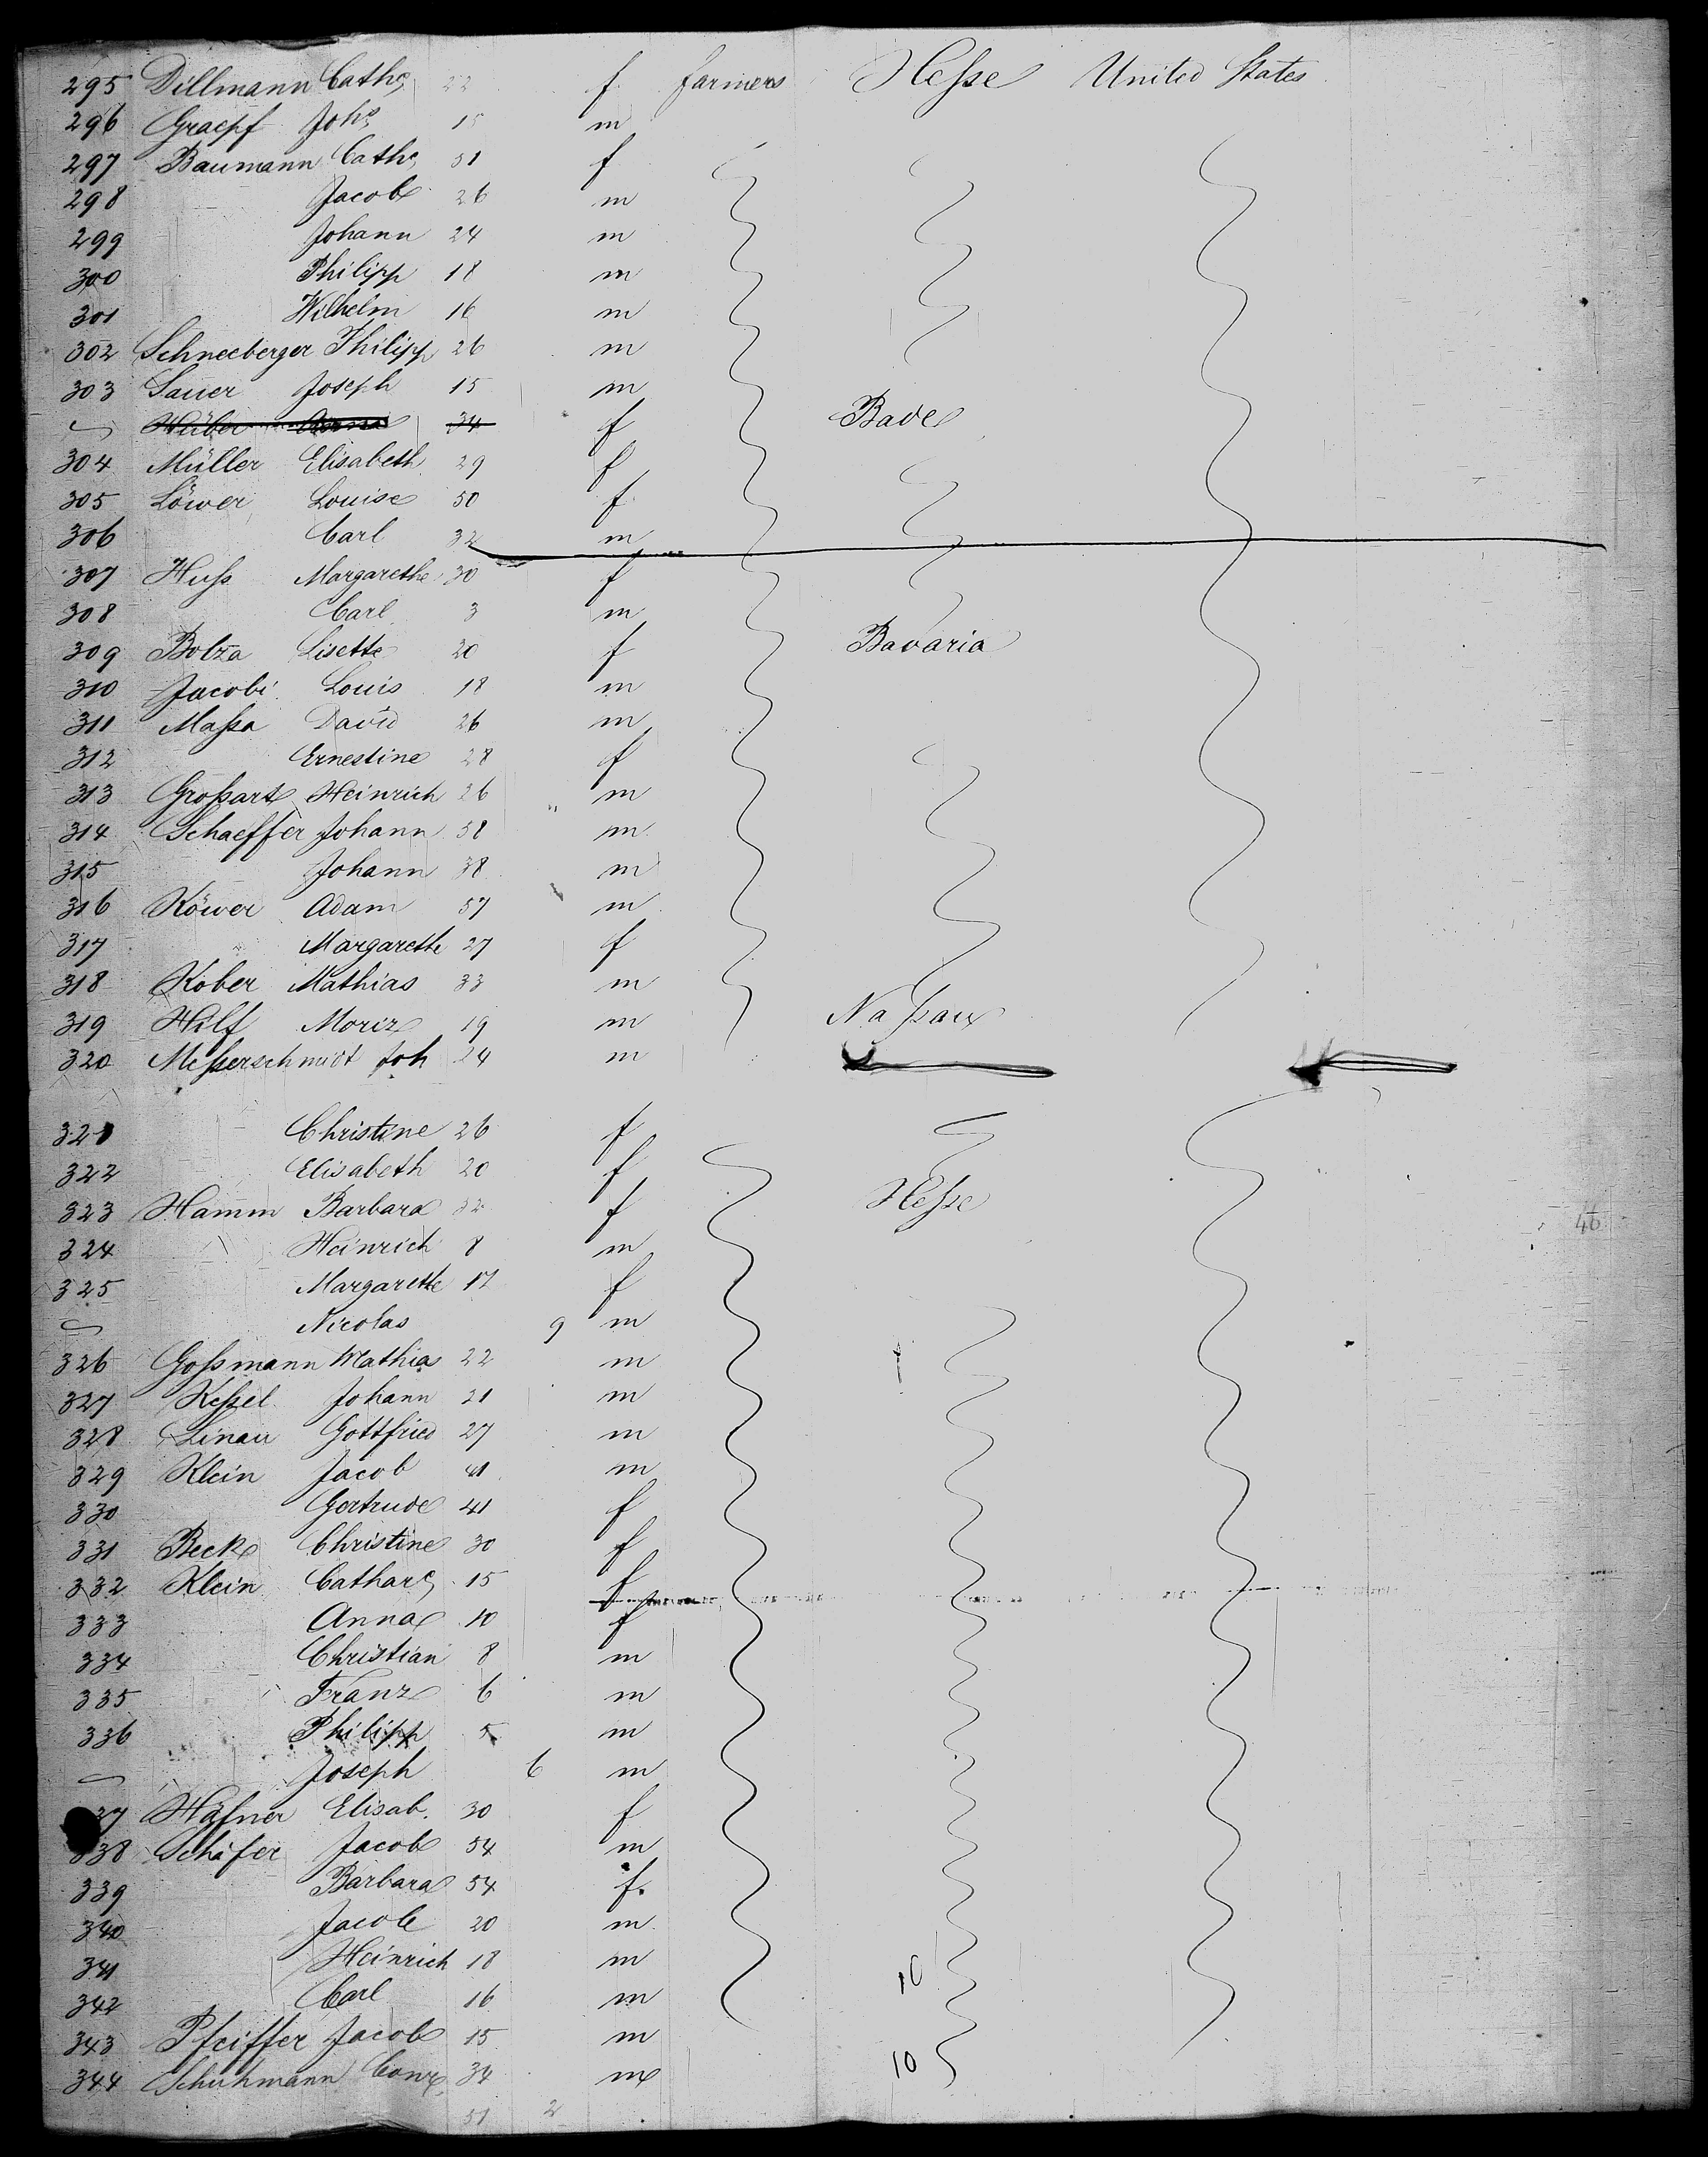 295 Dillmann Cathe 22 f. farmers Hesse United States
296 Graepf Johs 15 m
297 Baumann Cathe 51 f
298 Jacob 26 m
299 Johann 24 m
300 Philipp 18 m
301 Wilhelm 16 m
302 Schneeberger Philipp 26 m
303 Sauer Joseph 15 m
34 f Bade
304 Müller Elisabeth 29 f
305 Löwer Louise 50 f.
306 Carl 32 m
307 Huss Margarethe 30 f
308 Carl 3 m
309 Bolza Lisette 20 f Bavaria
310 Jacobi Louis 18 m
311 Massa David 26 m
312 Ernestine 28 f
313 Grossart Heinrich 26 m
314 Schaeffer Johann 58 m
315 Johann 38 m
316 Köwer Adam 57 m
317 Margareth 27 f
318 Kober Mathias 33 m
319 Hilf Moriz 19 m Nassau
320 Messerschmidt Joh 24 m
321 Christine 26 f
322 Elisabeth 20 f
323 Hamm Barbara 32 f Hesse
46
324 Heinrich 8 m
325 Margarethe 17 f
Nicolas 9 m
326 Gossmann Mathias 22 m
327 Kessel Johann 21 m
328 Linau Gottfried 27 m
329 Klein Jacob 41 m
330 Gertrude 41 f
331 Beck Christine 30 f
332 Klein Cathare 15 f
333 Anna 10 f
334 Christian 8 m
335 Franz 6 m
336 Philipp 5 m
Joseph 6 m
37 Häfner Elisab. 30 f
338 Schäfer Jacob 54 m
339 Barbara 54 f.
340 Jacob 20 m
341 Heinrich 18 m 10
342 Carl 16 m
343 Pfeiffer Jacob 15 m
344 Schuhmann Conr 34 m 10
51 2